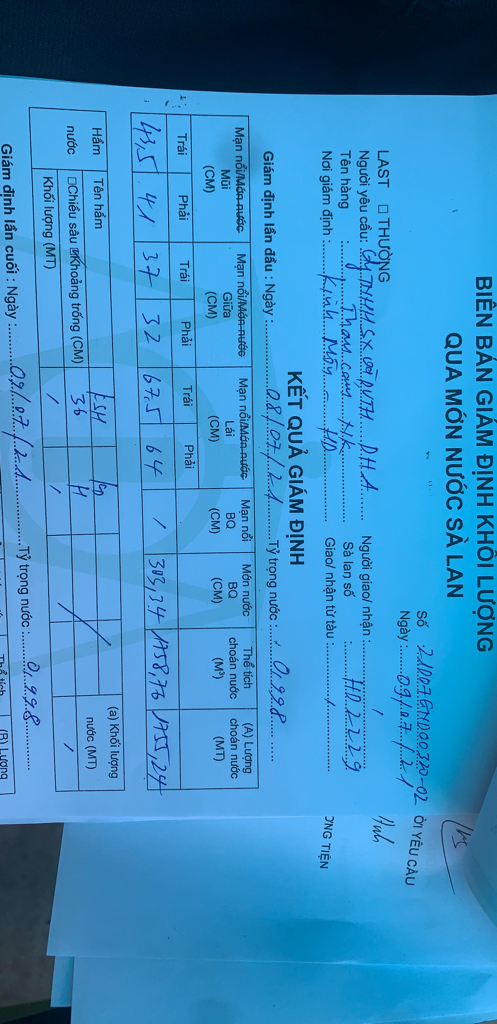 BIÊN BẢN GIÁM ĐỊNH KHỐI LƯỢNG
QUA MÓN NƯỚC SÀ LAN
Số 21007GND00320-02
Ngày : 09/07/21
ỜI YÊU CẦU
ƠNG TIỆN
LAST □ THƯỜNG
Người yêu cầu: Cty TNHH SX DVTH D.H.A
Người giao/ nhận :
Tên hàng : Than cam NK
Sà lan số : HD2229
Nơi giám định : Kinh Môn - HD
Giao/ nhận từ tàu :
KẾT QUẢ GIÁM ĐỊNH
Giám định lần đầu : Ngày : 08/07/21 Tỷ trọng nước : 0.998
Mạn nổi/Món nước Mũi (CM) Mạn nổi/Món nước Giữa (CM) Mạn nổi/Món nước Lái (CM) Mạn nổi BQ (CM) Món nước BQ (CM) Thể tích choán nước (M³) (A) Lượng choán nước (MT)
Trái Phải Trái Phải Trái Phải
43,5 41 37 32 67.5 64 / 303,34 1758,76 1755,24
Hầm nước Tên hầm (a) Khối lượng nước (MT)
□Chiều sâu ☒Khoảng trống (CM) 36 H
Khối lượng (MT) / / /
Giám định lần cuối : Ngày : 09/07/21 Tỷ trọng nước : 0.998
Thể tích (B) Lượng